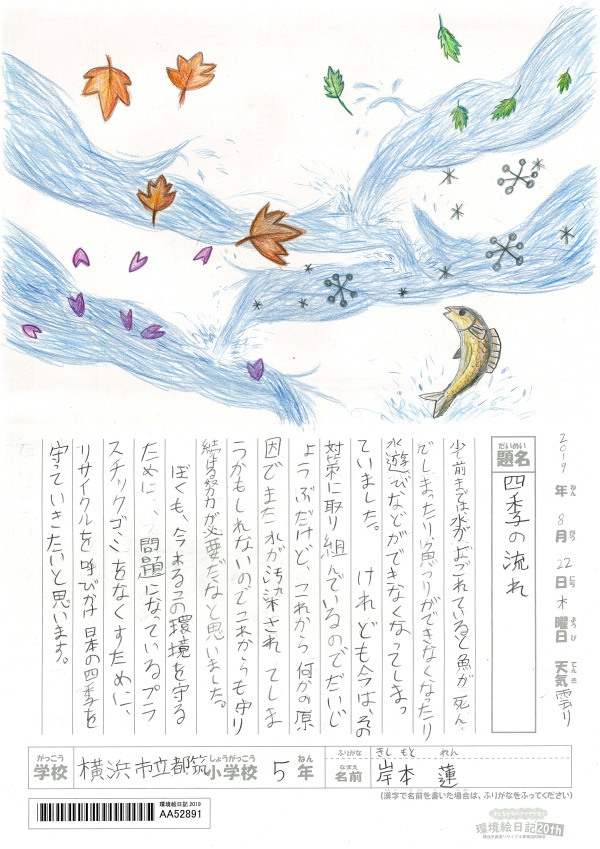 2019年 8月 22日 木曜日 天気 曇り
ねん がつ にち ようび てんき
だいめい
題名 四季の流れ
少し前までは水がよごれていると魚が死ん
でしまったり、魚つりができなくなったり
水遊びなどができなくなってしまっ
ていました。 けれども今は、その
対策に取り組んでいるのでだいじ
ょうぶだけど、これから何かの原
因でまたこれが汚染されてしま
うかもしれないのでこれからも守り
続ける努力が必要だなと思いました。
ぼくも、今あるこの環境を守る
ために、問題になっているプラ
スチックゴミをなくすために、
リサイクルを呼びかけ日本の四季を
守っていきたいと思います。
がっこう しょうがっこう ねん
学校 横浜市立都筑小学校 5年
ふりがな きし もと れん
なまえ
名前 岸本 蓮
(漢字で名前を書いた場合は、ふりがなをふってください)
環境絵日記 2019
AA52891
環境絵日記20th